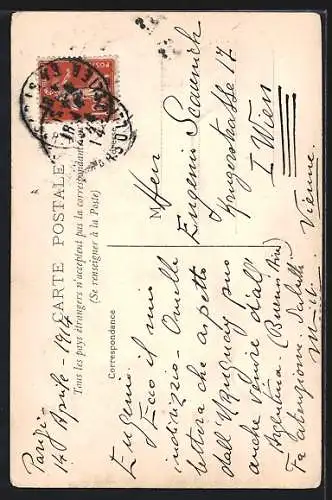 CARTE POSTALE
Tous les pays étrangers n'acceptent pas la correspondance au
(Se renseigner à la Poste)
Correspondance
Parigi
17 Aprile - 1914
Eugenio.
Ecco il mio
indirizzo - Quella
lettera che aspetto
dall'Uruguay può
anche venire dall'
Argentina. (Buenos Aires)
Fa attenzione. Saluti
M
Herr
Eugenio
Krugerstrasse 17
I Wien
Vienne.